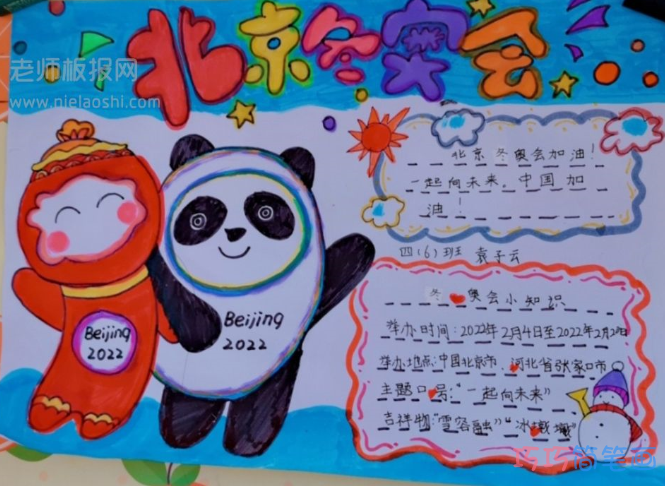 北京冬奥会
老师板报网
www.nielaoshi.com
北京冬奥会加油!
一起向未来,中国加
油!
四(6)班 袁子云
Beijing
2022
Beijing
2022
冬奥会小知识
举办时间:2022年2月4日至2022年2月20日
举办地点:中国北京市、河北省张家口市
主题口号:“一起向未来”
吉祥物“雪容融”“冰墩墩”
巧巧简笔画